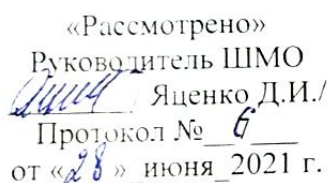 «Рассмотрено»
Руководитель ШМО
Яценко Д.И./
Протокол № 6
от «28» июня 2021 г.